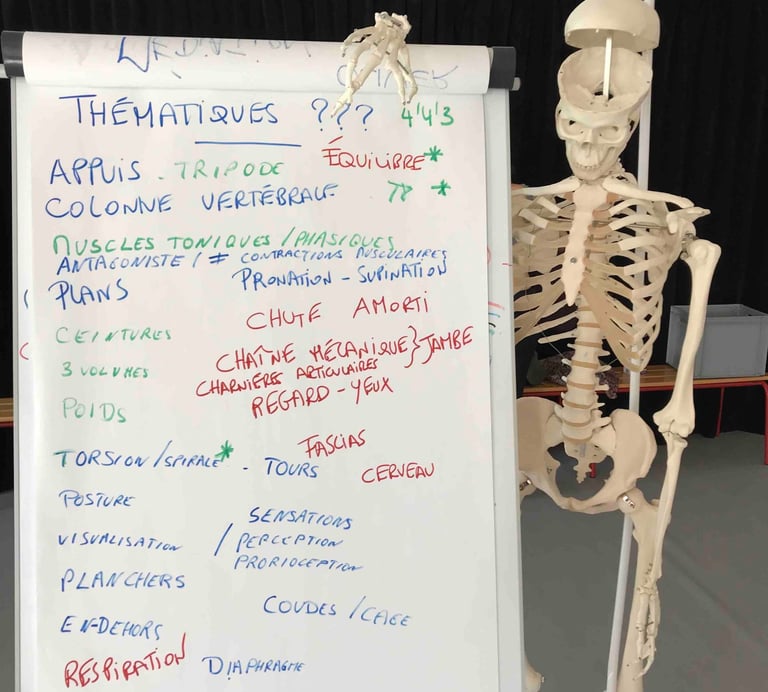 THÉMATIQUES ??? 4'4'3
APPUIS - TRIPODE ÉQUILIBRE*
COLONNE VERTÉBRALE *
MUSCLES TONIQUES / PHASIQUES
ANTAGONISTE / ≠ CONTRACTIONS MUSCULAIRES
PLANS PRONATION - SUPINATION
CHUTE AMORTI
CEINTURES
CHAÎNE MÉCANIQUE } JAMBE
3 VOLUMES
CHARNIÈRES ARTICULAIRES
REGARD - YEUX
POIDS
FASCIAS
TORSION / SPIRALE* - TOURS
CERVEAU
POSTURE
SENSATIONS
VISUALISATION / PERCEPTION
PRORIOCEPTION
PLANCHERS
COUDES / CAGE
EN-DEHORS
RESPIRATION DIAPHRAGME